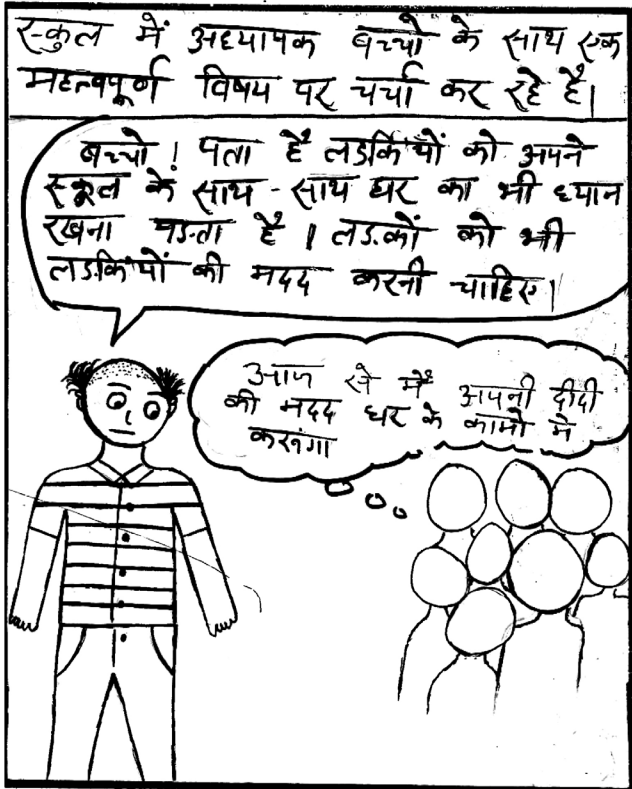 स्कुल में अध्यापक बच्चो के साथ एक
महत्वपूर्ण विषय पर चर्चा कर रहे है।
बच्चो! पता है लडकियों को अपने
स्कूल के साथ-साथ घर का भी ध्यान
रखना पडता है। लडकों को भी
लडकियों की मदद करनी चाहिए।
आज से मैं अपनी दीदी
की मदद घर के कामो मे
करूंगा